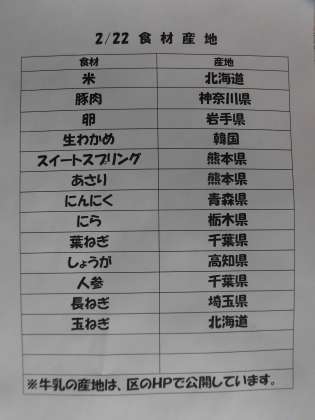 2/22 食材産地
食材 産地
米 北海道
豚肉 神奈川県
卵 岩手県
生わかめ 韓国
スイートスプリング 熊本県
あさり 熊本県
にんにく 青森県
にら 栃木県
葉ねぎ 千葉県
しょうが 高知県
人参 千葉県
長ねぎ 埼玉県
玉ねぎ 北海道
※牛乳の産地は、区のHPで公開しています。